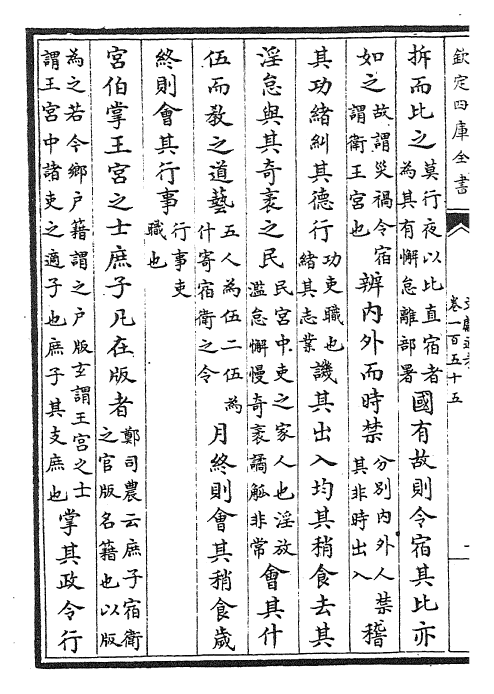 欽定四庫全書
卷一百五十五
拆而比之莫行夜以比直宿者為其有懈怠離部署國有故則令宿其比亦
如之故謂災禍令宿謂衛王宮也辨内外而時禁分別内外人禁其非時出入稽
其功緒糾其德行功吏職也緒其志業譏其出入均其稍食去其
淫怠與其奇衺之民民宮中吏之家人也淫放濫怠懈慢奇衺譎觚非常會其什
伍而教之道藝五人為伍二伍為什寄宿衛之令月終則會其稍食歲
終則會其行事行事吏職也
宮伯掌王宮之士庶子凡在版者鄭司農云庶子宿衛之官版名籍也以版
為之若今鄉户籍謂之户版玄謂王宮之士謂王宮中諸吏之適子也庶子其支庶也掌其政令行